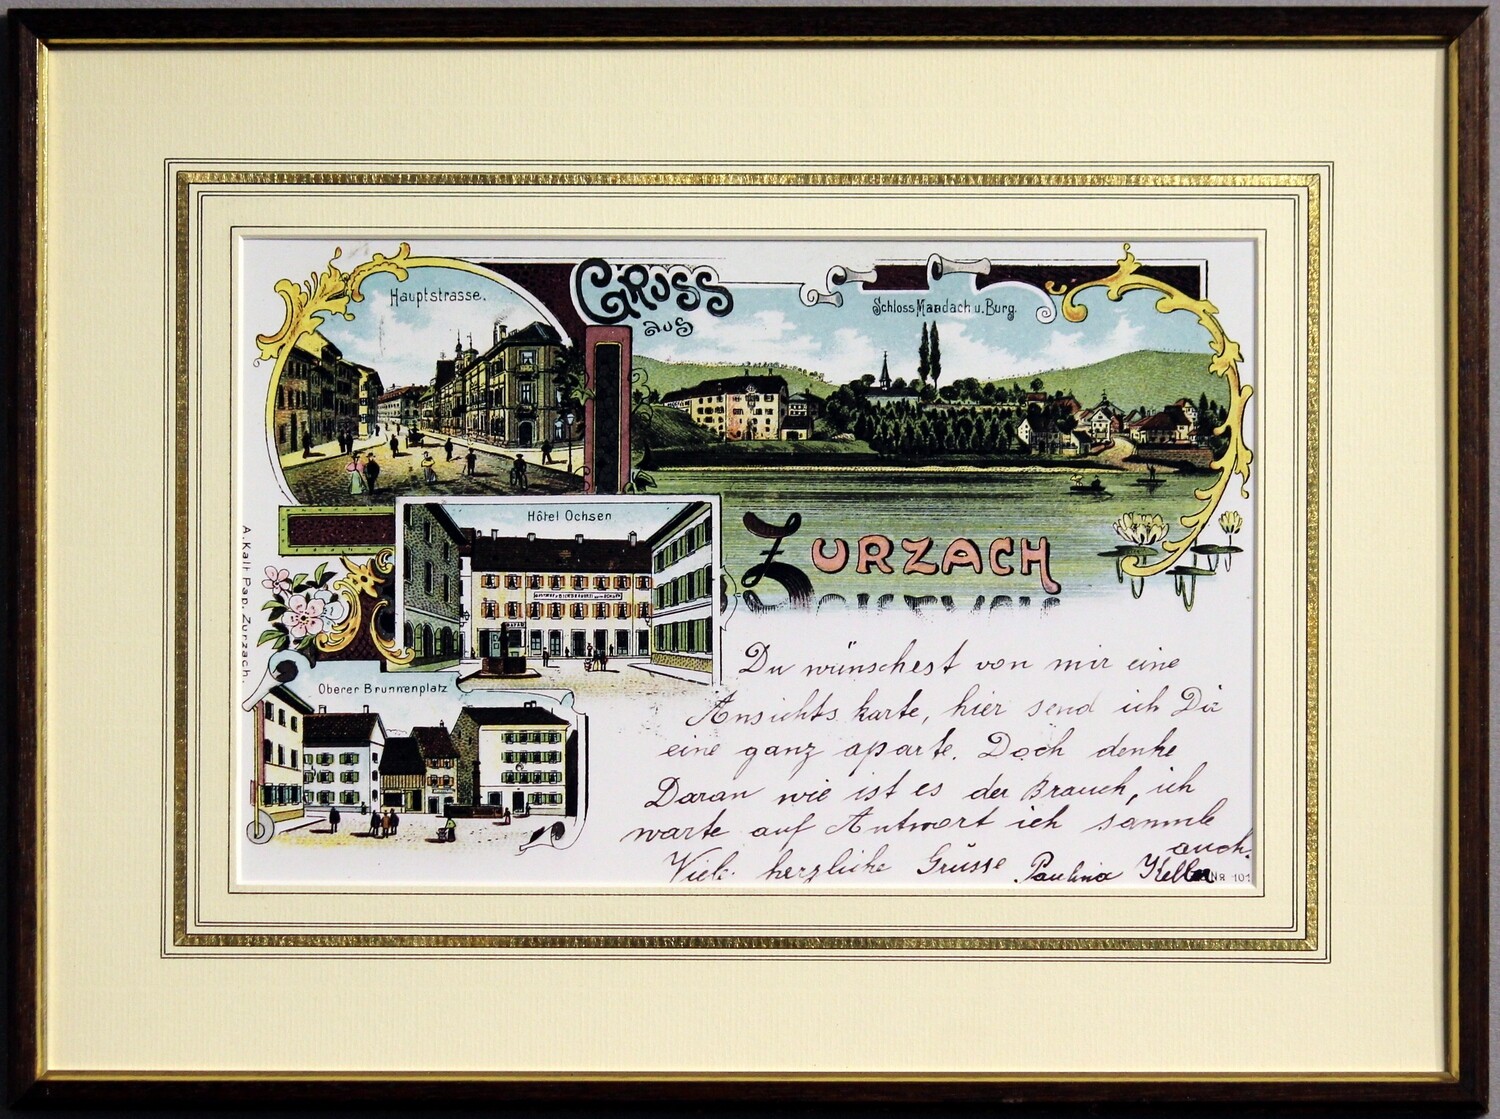 Hauptstrasse.
Gruss
aus
Schloss Mandach u. Burg.
Hôtel Ochsen
ZURZACH
A. Kalt Pap. Zurzach.
Oberer Brunnenplatz
Du wünschest von mir eine
Ansichts karte, hier send ich Dir
eine ganz aparte. Doch denke
Daran wie ist es der Brauch, ich
warte auf Antwort ich sammle
auch.
Viele herzliche Grüsse Paulina Keller
NR 101